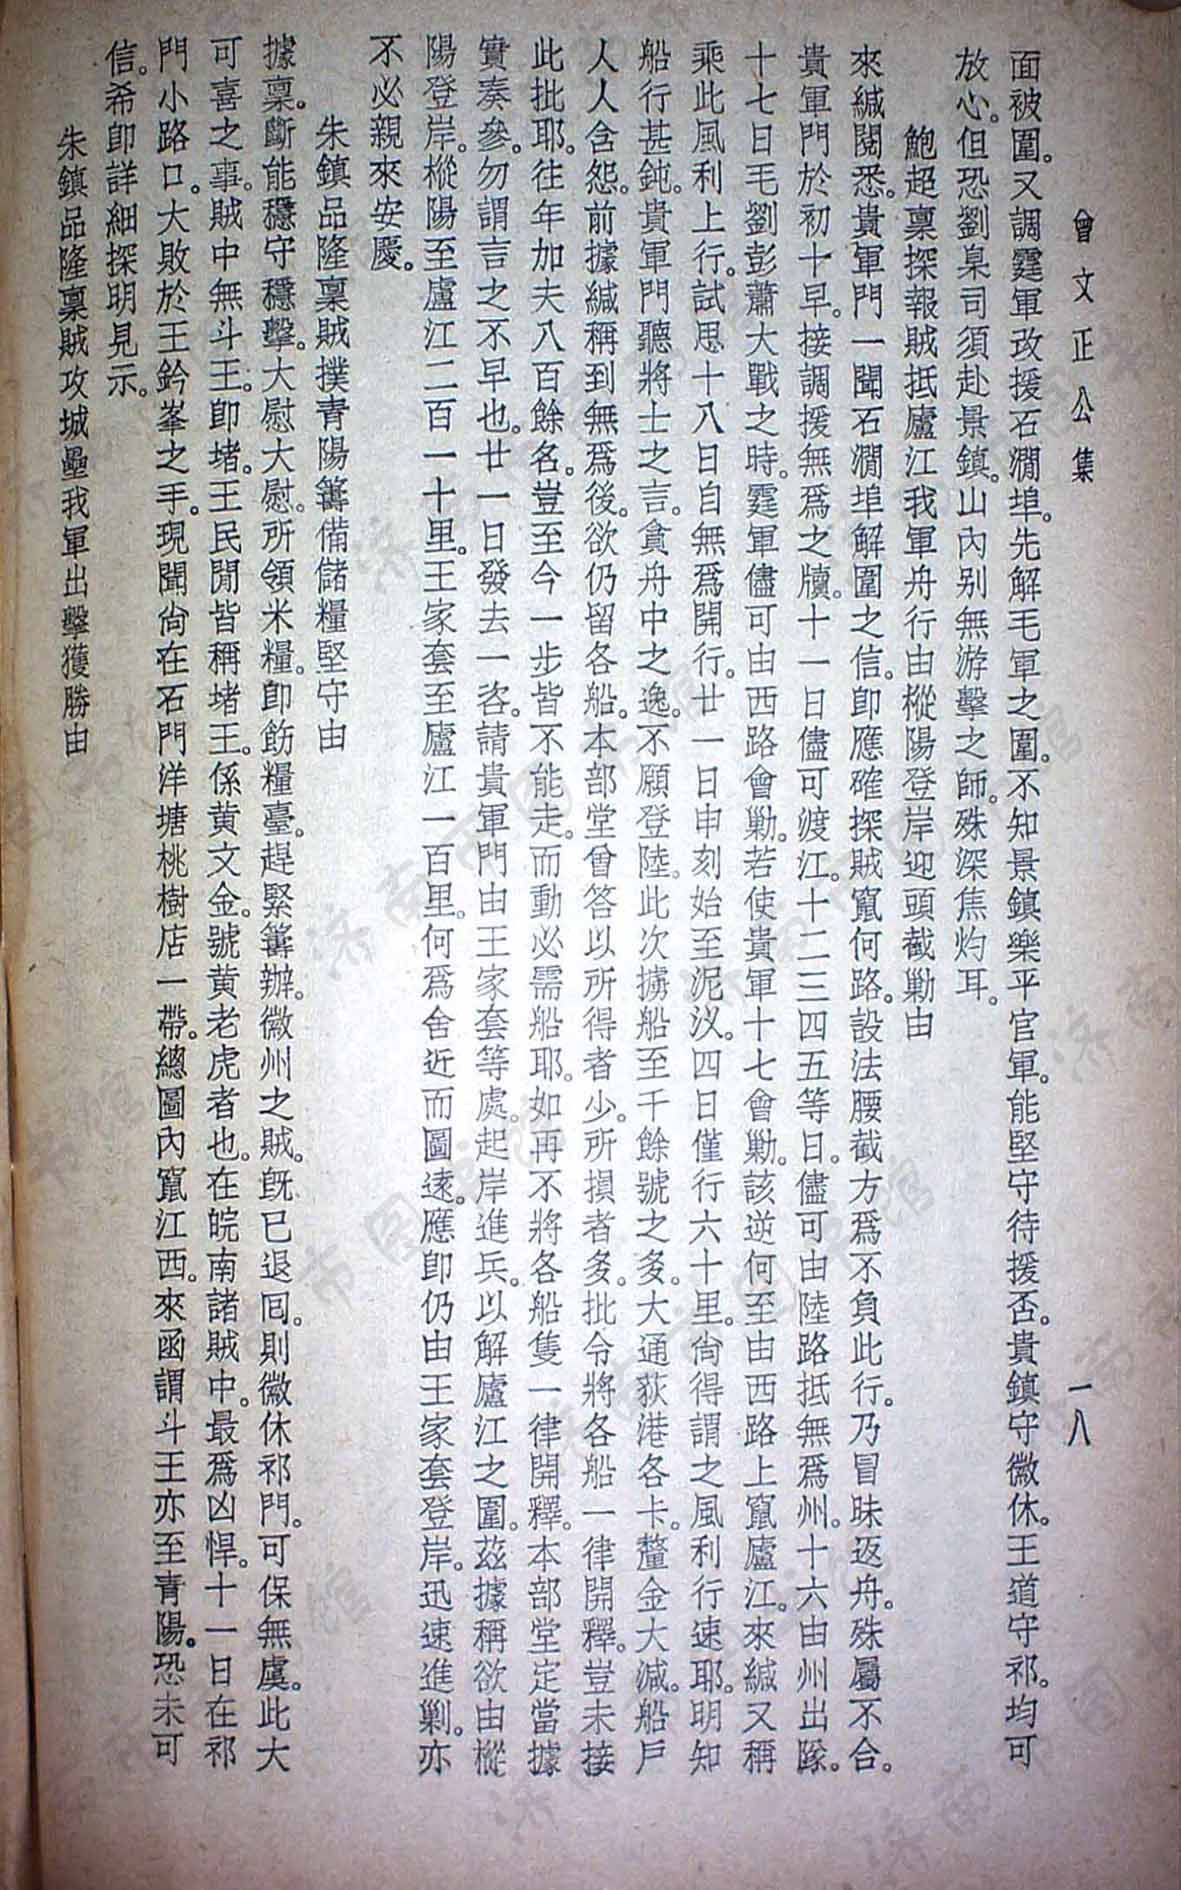 曾文正公集
一八
面被圍。又調霆軍改援石澗埠。先解毛軍之圍。不知景鎮樂平官軍。能堅守待援否。貴鎮守徽休。王道守祁。均可
放心。但恐劉臬司須赴景鎮。山內別無游擊之師。殊深焦灼耳。
鮑超稟探報賊抵廬江我軍舟行由樅陽登岸迎頭截勦由
來緘閱悉。貴軍門一聞石澗埠解圍之信。卽應確探賊竄何路。設法腰截方爲不負此行。乃冒昧返舟。殊屬不合。
貴軍門於初十早。接調援無爲之牘。十一日儘可渡江。十二三四五等日。儘可由陸路抵無爲州。十六由州出隊。
十七日毛劉彭蕭大戰之時。霆軍儘可由西路會勦。若使貴軍十七會勦。該逆何至由西路上竄廬江。來緘又稱
乘此風利上行。試思十八日自無爲開行。廿一日申刻始至泥汊。四日僅行六十里。尙得謂之風利行速耶。明知
船行甚鈍。貴軍門聽將士之言。貪舟中之逸。不願登陸。此次擄船至千餘號之多。大通荻港各卡。釐金大減。船戶
人人含怨。前據緘稱到無爲後。欲仍留各船。本部堂曾答以所得者少。所損者多。批令將各船一律開釋。豈未接
此批耶。往年加夫八百餘名。豈至今一步皆不能走。而動必需船耶。如再不將各船隻一律開釋。本部堂定當據
實奏參。勿謂言之不早也。廿一日發去一咨。請貴軍門由王家套等處。起岸進兵。以解廬江之圍。茲據稱欲由樅
陽登岸。樅陽至廬江二百一十里。王家套至廬江一百里。何爲舍近而圖遠。應卽仍由王家套登岸。迅速進剿。亦
不必親來安慶。
朱鎮品隆稟賊撲青陽籌備儲糧堅守由
據稟。斷能穩守穩擊。大慰大慰。所領米糧。卽飭糧臺。趕緊籌辦。徽州之賊。旣已退囘。則徽休祁門。可保無虞。此大
可喜之事。賊中無斗王。卽堵。王民閒皆稱堵王。係黃文金。號黃老虎者也。在皖南諸賊中。最爲凶悍。十一日在祁
門小路口。大敗於王鈐峯之手。現聞尙在石門洋塘桃樹店一帶。總圖內竄江西。來函謂斗王亦至青陽。恐未可
信。希卽詳細探明見示。
朱鎮品隆稟賊攻城壘我軍出擊獲勝由